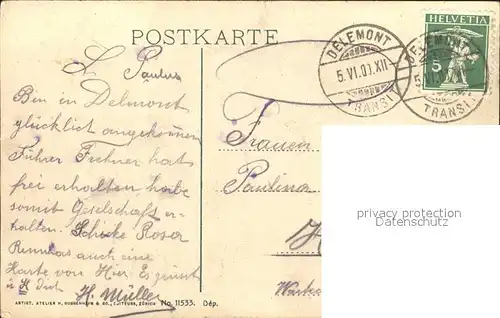 POSTKARTE
DELEMONT
5.VI.09.XII
TRANSIT
DELEMONT
TRANSIT
HELVETIA
5
L Paulus
Bin in Delmont
glücklich angekommen
Führer Fechner hat
frei erhalten, habe
somit Gesellschaft er-
halten. Schicke Rosa
auch eine
Karte von Hier. Es grüsst
Dich
H. Müller
Frauen
Paulina
privacy protection
Datenschutz
No. 11533. Dép.